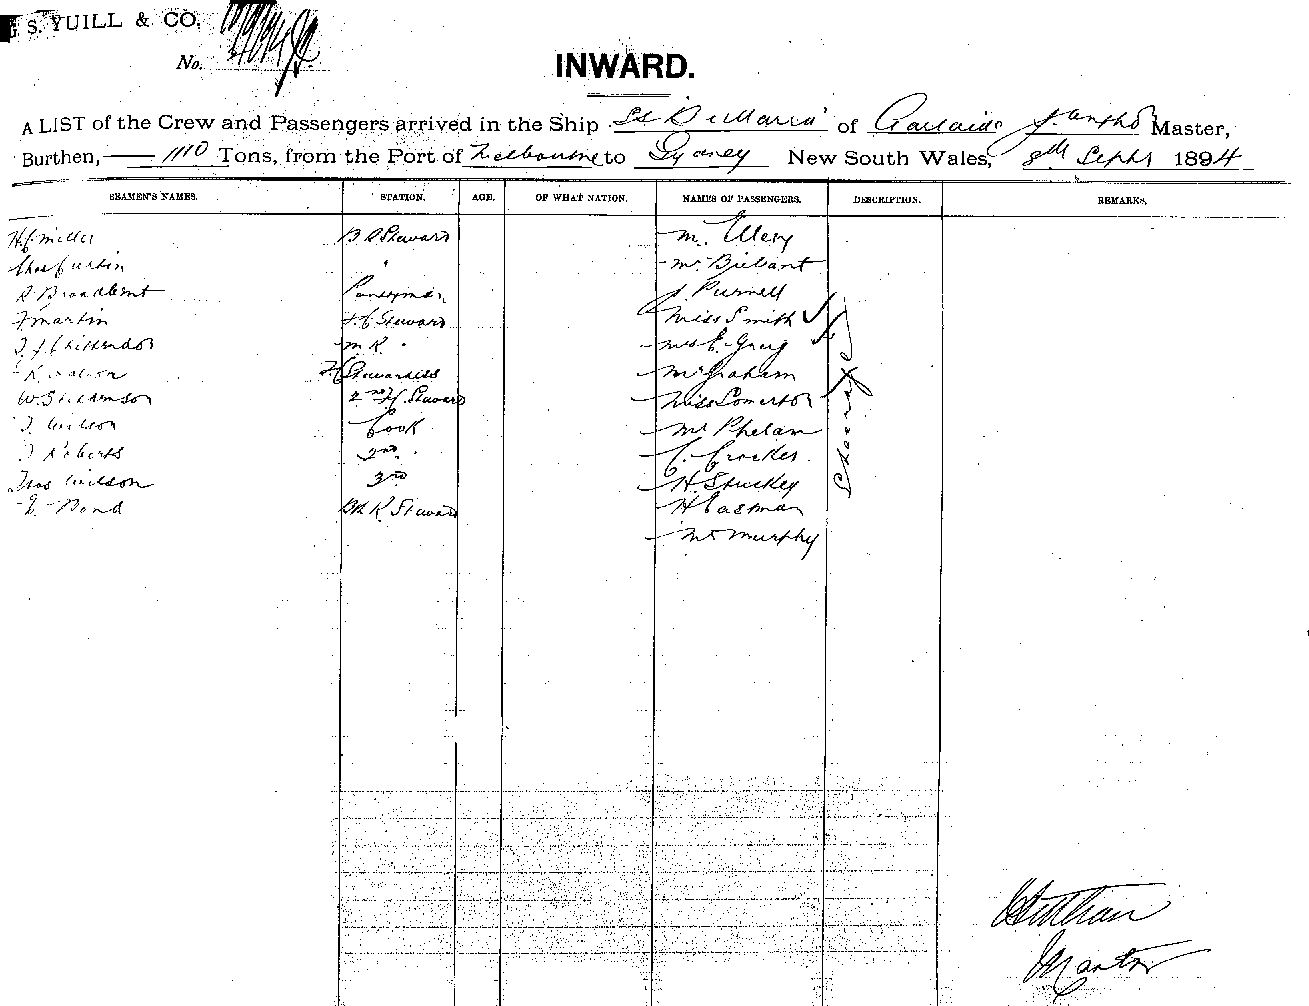 G. S. YUILL & CO.
No.
INWARD.
A LIST of the Crew and Passengers arrived in the Ship of Adelaide Master,
Burthen, 1110 Tons, from the Port of Melbourne to Sydney New South Wales, 8th Septr 1894
SEAMEN'S NAMES. STATION. AGE. OF WHAT NATION. NAMES OF PASSENGERS. DESCRIPTION. REMARKS.
H. C. Miller B R Steward M. Ellery
Chas Curtin " Mr
R Broadbent Pantryman J Purnell
F Martin F. C Steward Miss Smith
M R " Mrs E. Greig
F C Stewardess Mr Graham
W. 2nd F C. Steward Miss Somerton
J. Wilson Cook Mr Phelan
J Roberts 2nd " C. Crocker
Thos Wilson 3rd H. Stuckey
E. Pond Bk R. Steward H Eastman
Mr Murphy
Steerage
Master